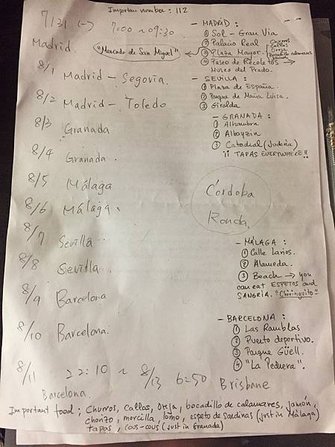 Important number : 112
7/31 ~ 7:00 ~ 09:30.
Madrid.
"Mercado de San Miguel"
8/1 Madrid - Segovia
8/2 Madrid - Toledo
8/3 Granada
8/4 Granada.
8/5 Málaga
8/6 Málaga.
8/7 Sevilla
8/8 Sevilla
8/9 Barcelona
8/10 Barcelona.
8/11 22:10 ~ 8/13 6:50 Brisbane
Barcelona.
Córdoba
Ronda
- MADRID :
① Sol - Gran Vía
② Palacio Real
③ Plaza Mayor.
④ Paseo de Recoletos →
Museo del Prado.
- SEVILLA :
① Plaza de España.
② Parque de María Luisa.
③ Giralda
- GRANADA :
① Alhambra
② Albayzín
③ Catedral
¡¡ TAPAS EVERYWHERE !!
- MÁLAGA :
① Calle Larios.
② Alameda.
③ Beach → you
can eat ESPETOS and
SANGRÍA. "Chiringuito"
- BARCELONA :
① Las Ramblas
② Puerto deportivo.
③ Parque Güell.
④ "La Pedrera".
Important food ; Churros, Callos, Oreja, bocadillo de calamares, jamón,
chorizo, morcilla, lomo, espeto de Sardinas (just in Málaga)
tapas, cous-cous (just in Granada)